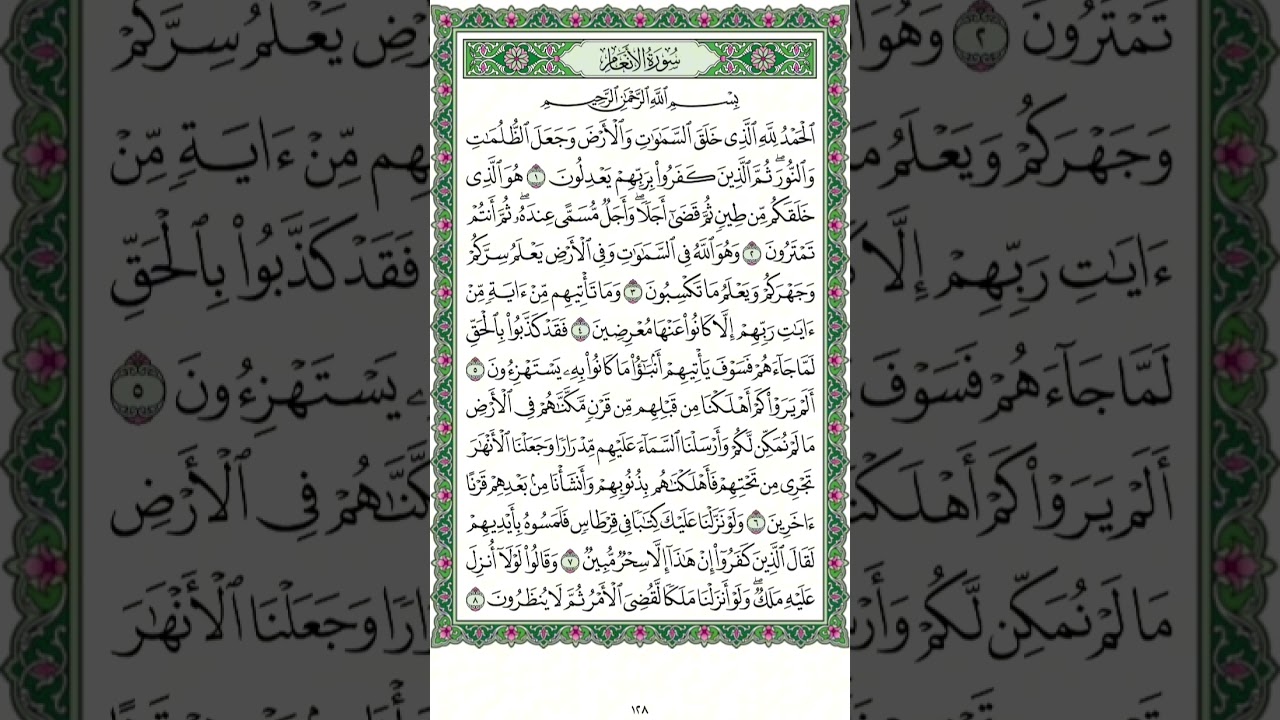 سُورَةُ الْأَنْعَامِ
بِسْمِ اللَّهِ الرَّحْمَٰنِ الرَّحِيمِ
ٱلْحَمْدُ لِلَّهِ ٱلَّذِى خَلَقَ ٱلسَّمَٰوَٰتِ وَٱلْأَرْضَ وَجَعَلَ ٱلظُّلُمَٰتِ
وَٱلنُّورَۖ ثُمَّ ٱلَّذِينَ كَفَرُوا۟ بِرَبِّهِمْ يَعْدِلُونَ ١ هُوَ ٱلَّذِى
خَلَقَكُم مِّن طِينٍ ثُمَّ قَضَىٰٓ أَجَلًاۖ وَأَجَلٌ مُّسَمًّى عِندَهُۥۖ ثُمَّ أَنتُمْ
تَمْتَرُونَ ٢ وَهُوَ ٱللَّهُ فِى ٱلسَّمَٰوَٰتِ وَفِى ٱلْأَرْضِ يَعْلَمُ سِرَّكُمْ
وَجَهْرَكُمْ وَيَعْلَمُ مَا تَكْسِبُونَ ٣ وَمَا تَأْتِيهِم مِّنْ ءَايَةٍ مِّنْ
ءَايَٰتِ رَبِّهِمْ إِلَّا كَانُوا۟ عَنْهَا مُعْرِضِينَ ٤ فَقَدْ كَذَّبُوا۟ بِٱلْحَقِّ
لَمَّا جَآءَهُمْ فَسَوْفَ يَأْتِيهِمْ أَنۢبَٰٓؤُا۟ مَا كَانُوا۟ بِهِۦ يَسْتَهْزِءُونَ ٥
أَلَمْ يَرَوْا۟ كَمْ أَهْلَكْنَا مِن قَبْلِهِم مِّن قَرْنٍ مَّكَّنَّٰهُمْ فِى ٱلْأَرْضِ
مَا لَمْ نُمَكِّن لَّكُمْ وَأَرْسَلْنَا ٱلسَّمَآءَ عَلَيْهِم مِّدْرَارًا وَجَعَلْنَا ٱلْأَنْهَٰرَ
تَجْرِى مِن تَحْتِهِمْ فَأَهْلَكْنَٰهُم بِذُنُوبِهِمْ وَأَنشَأْنَا مِنۢ بَعْدِهِمْ قَرْنًا
ءَاخَرِينَ ٦ وَلَوْ نَزَّلْنَا عَلَيْكَ كِتَٰبًا فِى قِرْطَاسٍ فَلَمَسُوهُ بِأَيْدِيهِمْ
لَقَالَ ٱلَّذِينَ كَفَرُوٓا۟ إِنْ هَٰذَآ إِلَّا سِحْرٌ مُّبِينٌ ٧ وَقَالُوا۟ لَوْلَآ أُنزِلَ
عَلَيْهِ مَلَكٌۖ وَلَوْ أَنزَلْنَا مَلَكًا لَّقُضِىَ ٱلْأَمْرُ ثُمَّ لَا يُنظَرُونَ ٨
١٢٨